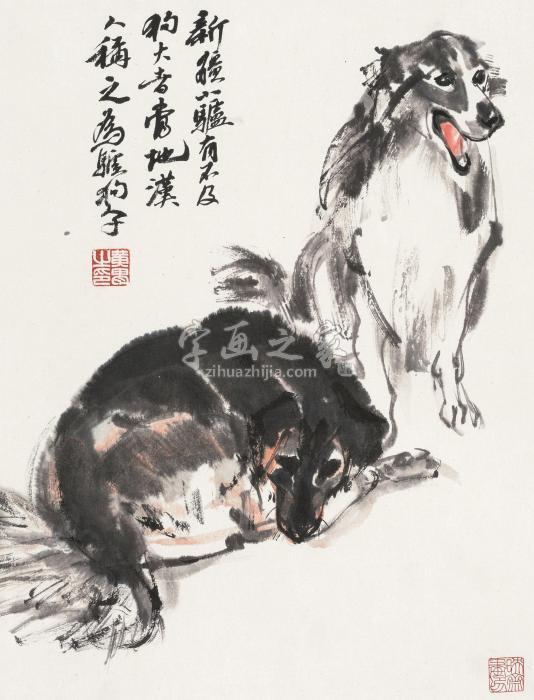 新疆小驢有不及
狗大者當地漢
人稱之為驢狗子
黃胄之印
字画之家
zihuazhijia.com